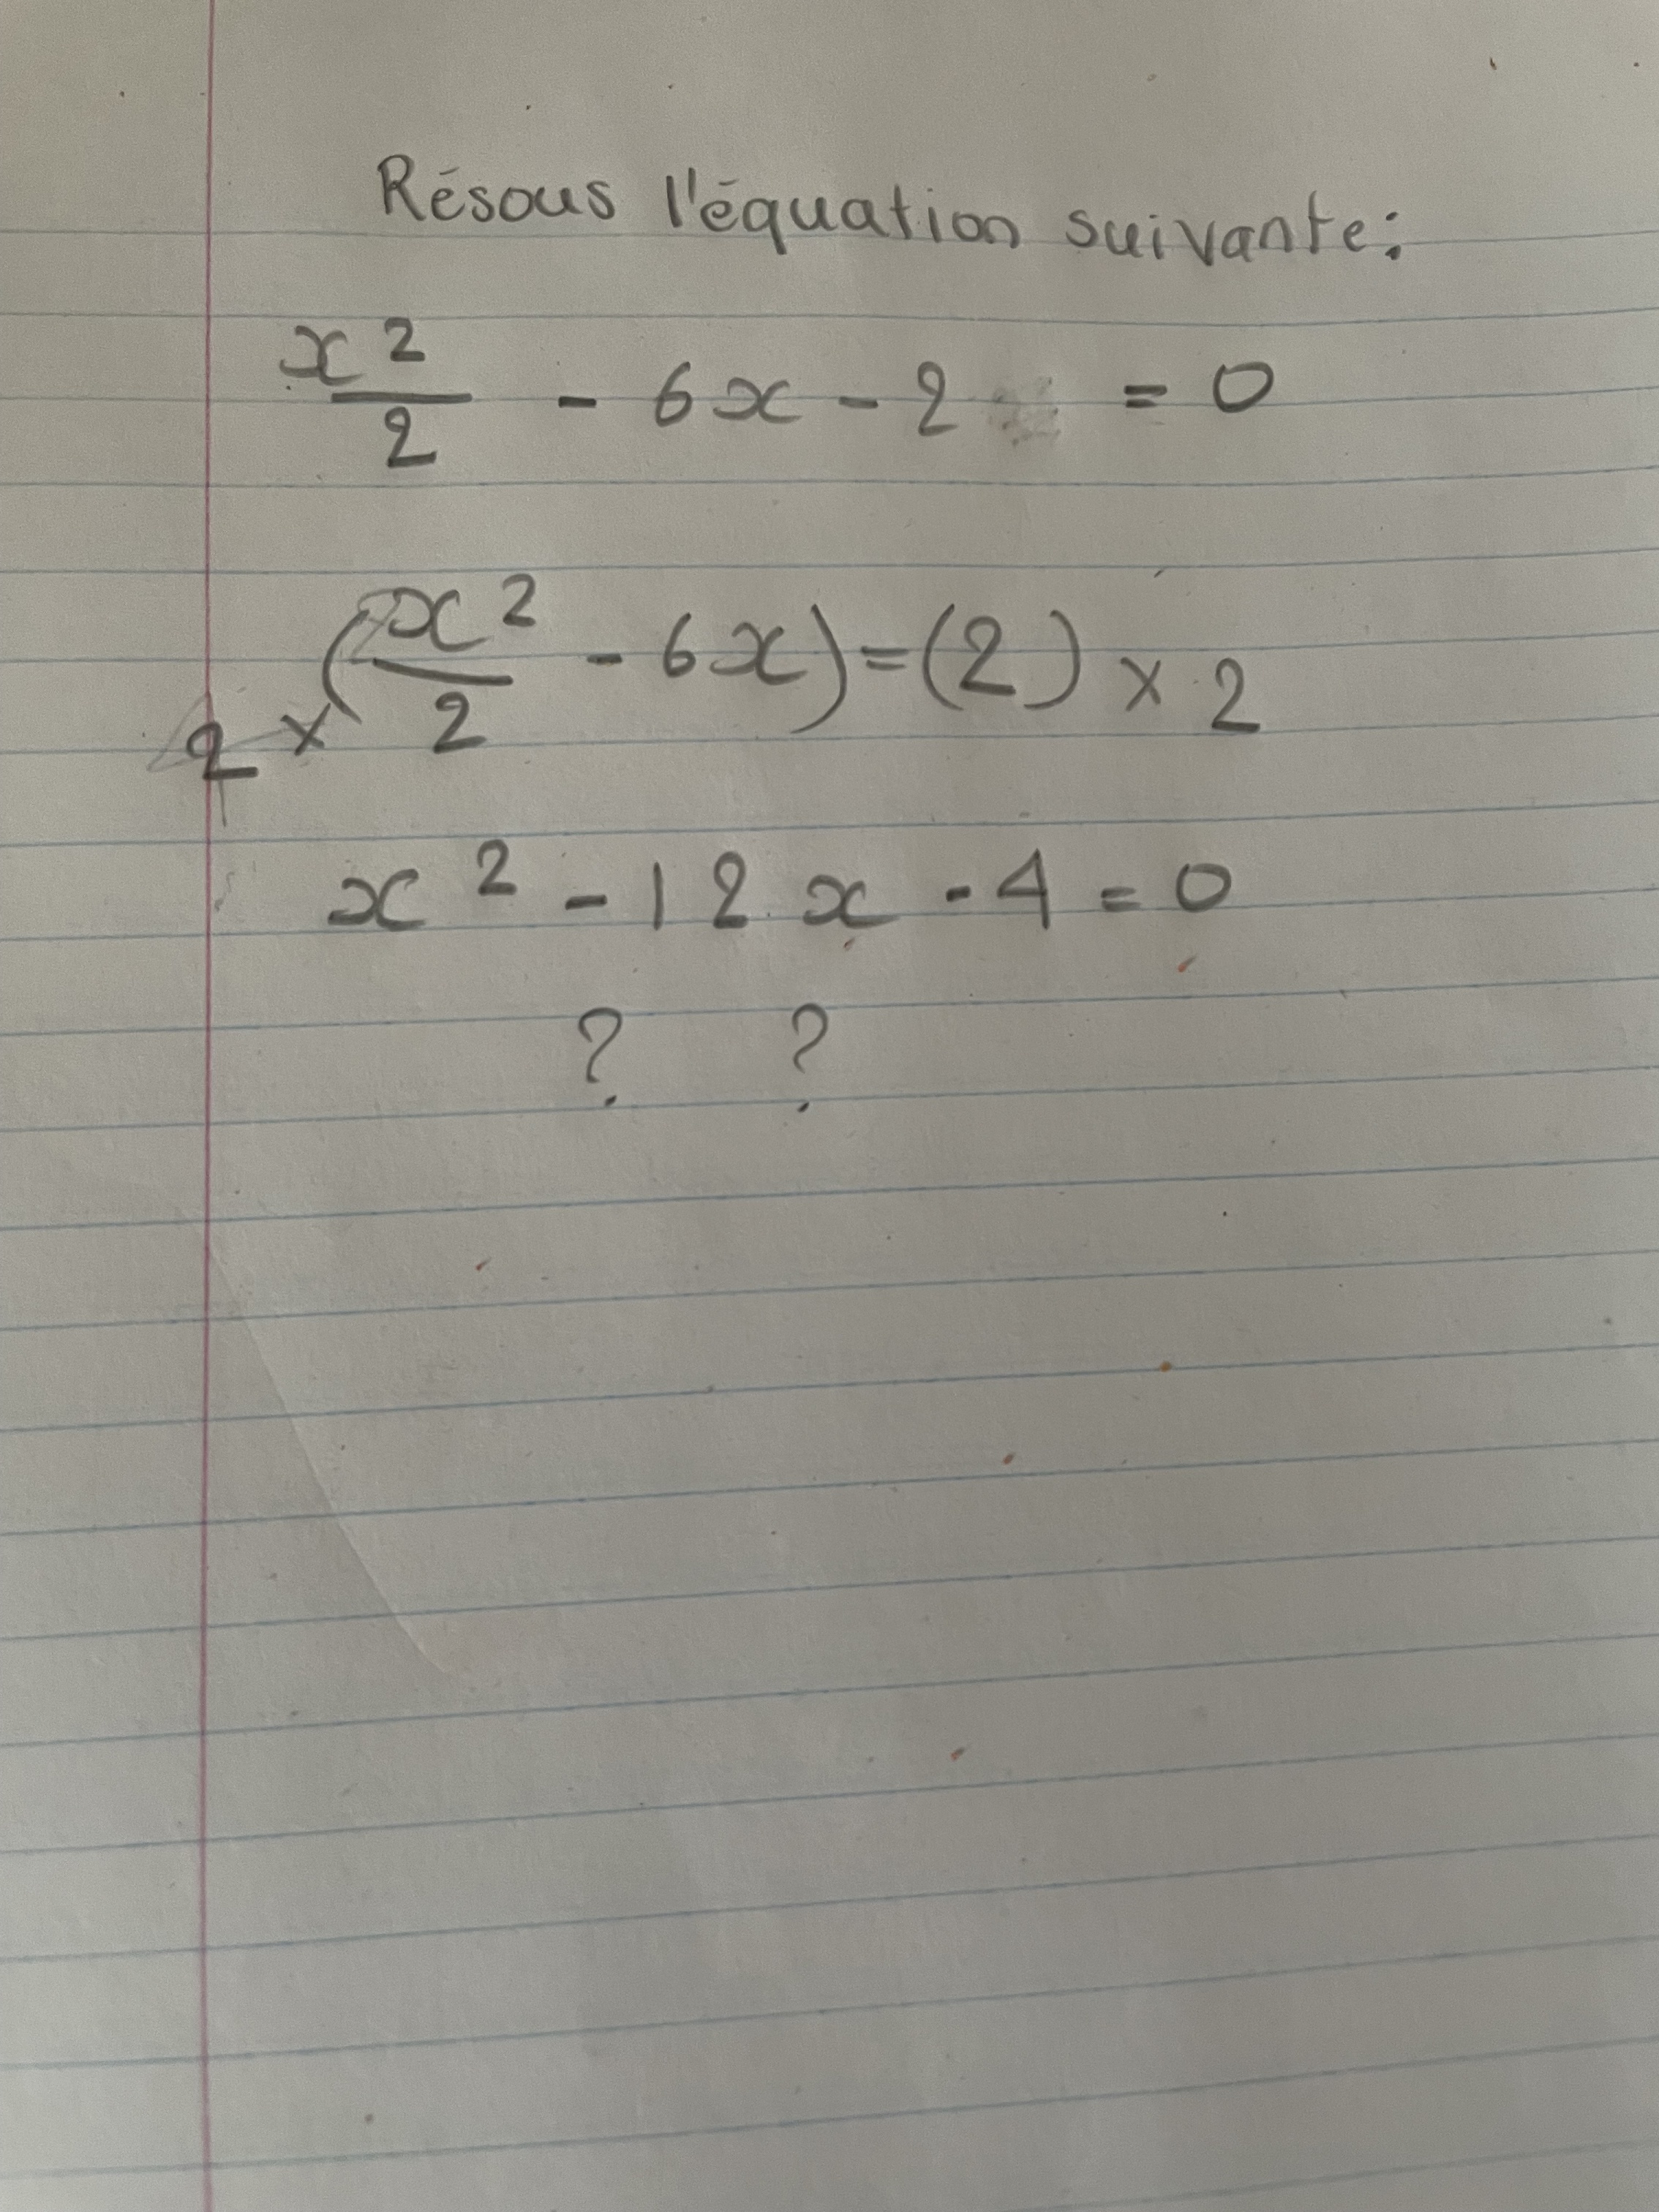 Résous l'équation suivante:
x²/2 - 6x - 2 = 0
2 × (x²/2 - 6x) = (2) × 2
x² - 12x - 4 = 0
? ?